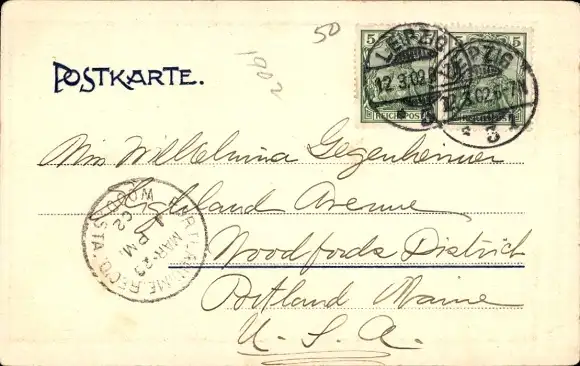 50
1602
POSTKARTE.
5 5 5
REICHSPOST REICHSPOST
LEIPZIG
12.3.02
3
LEIPZIG
12.3.02.6-7N
3
Miss Wilhelmina Gegenheimer
Highland Avenue
Woodfords District
Portland Maine
U. S. A.
PORTLAND, ME. REC'D.
MAR 23
1 PM
02
WOODFORDS STA.